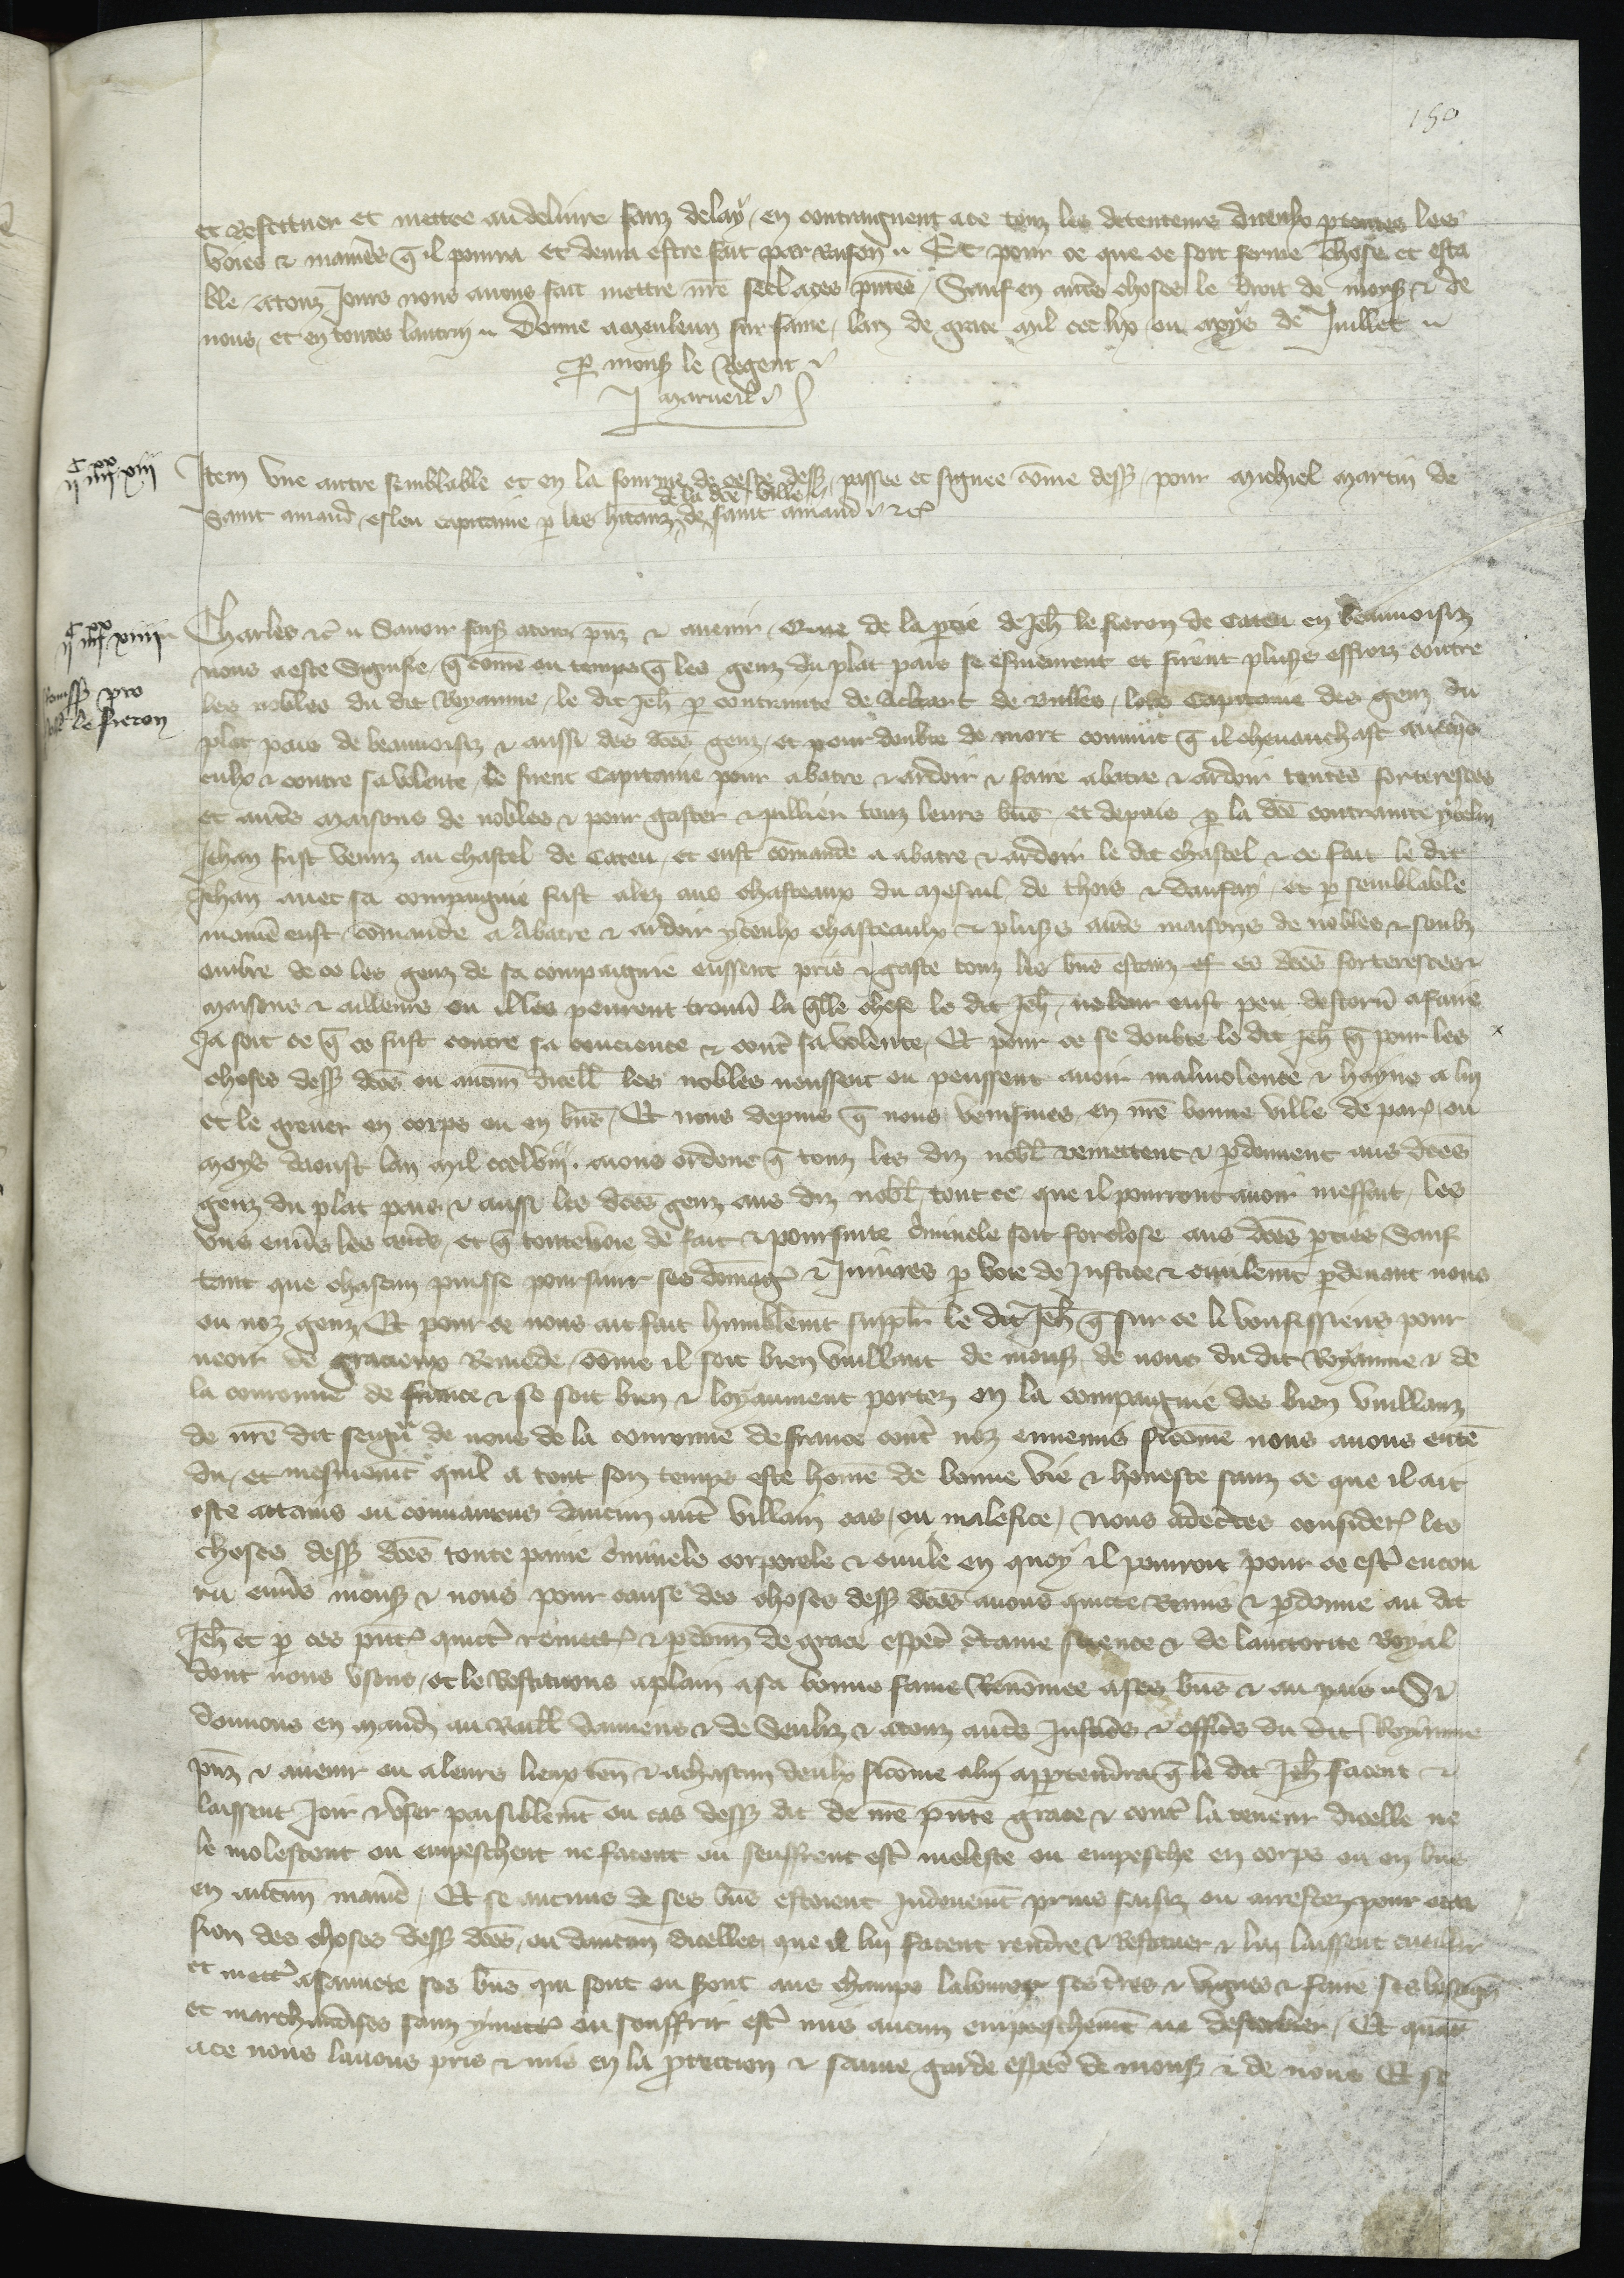 150
et restituer et mettre au delivre sanz delay, en contraignent a ce touz les detenteurs diceulx p toutes les
voies & manieres q il pourra et devra estre fait par raison. Et pour ce que ce soit ferme chose et esta
ble a touz jours nous avons fait mettre nre seel a ces pntes, Sauf en autres choses le droit de mons & de
nous, et en toutes lautrui. Donne a Meuleun sur Saine, lan de grace mil ccc lix ou moys de Juillet
p mons le Regent
J Marueil
c xx
ii iiii xiii
Item une autre semblable et en la fourme de ceste dess, passee et signee come dess, pour Michiel Martin de
de la dce ville
Saint amand, esleu capitaine p les hitanz de saint amand & c
c xx
ii iiii xiiii
Charles &c. Savoir faiz a touz pnz & avenir, Que de la ptie de Jeh le fieron de Cateu en beauvoisiz
nous a este signifie, q come ou temps q les genz du plat pais se esmeurent et firent pluss effrois contre
Remiss pro
Joh le fieron
les nobles du dit Royaume, le dit Jeh p contrainte de Achart de Bulles, lors Capitaine des genz du
plat pais de beauvoisiz & aussi des dces genz, et pour doubte de mort convint q il chevauchast avecqs
eulx & contre sa volente, le firent Capitaine pour abatre & ardoir & faire abatre & ardoir toutes forteresces
et autres maisons de nobles & pour gaster & pillier touz leurs bns, et depuis p la dce contrainte ycelui
Jehan fust venuz au chastel de Cateu, et eust comande a abatre & ardoir le dit chastel & ce fait le dit
Jehan avec sa compaignie fust alez aus chasteaux du Mesnil de thois & daufay, et p semblable
maniere eust comande a abatre & ardoir yceulx chasteaulx & pluss autres maisons de nobles & soubz
ombre de ce les genz de sa compaignie eussent pris & gaste touz les bns estanz es dces forteresces &
maisons & ailleurs ou il les peurent trouver la qlle chose le dit Jeh, ne leur eust peu destorner a faire
Ja soit ce q ce fust contre sa concience & contre sa volente, Et pour ce se doubte le dit Jeh q pour les
choses dess dces ou aucune dicelles les nobles neussent ou peussent avoir malivolence & hayne a lui
et le grever en corps ou en bns, Et nous depuis q nous venismes en nre bonne ville de par, ou
moys daoust lan mil ccclviii. avons ordene q touz les diz nobl remettent & pdonnent aus dces
genz du plat pais & aussi les dces genz aus diz nobl, tout ce que il pourront avoir meffait, les
uns envers les autres, et q toute voie de fait & poursuite criminele soit forclose aus dces pties, Sauf
tant que chascun puisse poursuir ses domages & Injures p voie de Justice & civilemt pdevant nous
ou noz genz, Et pour ce nous ait fait humblemt supplier le dit Jeh q sur ce li voussissiens pour
veoir de gracieux remede, come il soit bien vuillant de mons, de nous du dit Royaume & de
la couronne de france & se soit bien & loyaument portez en la compaignie des bien vuillanz
de nre dit seigur de nous de la couronne de france contre noz ennemis sicome nous avons enten
du, et mesmemt quil a tout son temps este home de bonne vie & honeste sanz ce que il ait
este attains ou convaincus daucun autre villain cas, ou malefice, Nous adecertes consider les
choses dess dces toute paine criminele corporele & civile en quoy il pourroit pour ce estre encou
ru envers mons & nous pour cause des choses dess dces avons quitte remis & pdonne au dit
Jeh et p ces pntes quittons remettons & pdonnons de grace especial certaine science & de lauctorite Royal
dont nous usons, et le restituons a plain a sa bonne fame renomee a ses bns & au pais. Si
donnons en mandement au Baill damiens & de Senliz & a touz autres Justiciers & officiers du dit Royaume
pnz & avenir ou a leurs lieux ten & a chascun deulx sicome a lui appartendra q le dit Jeh facent &
laissent Joir & user paisiblemt ou cas dess dit de nre pnte grace & contre la teneur dicelle ne
le molestent ou empeschent ne facent ou seuffrent estre moleste ou empesche en corps ou en bns
en aucune maniere, Et se aucuns de ses bns estoient Indeuemt prins saisiz ou arrestez pour occa
sion des choses dess dces, ou daucune dicelles, que il lui facent rendre & restituer & lui laissent cueillir
et mettre a sauvete ses bns qui sont ou seront aus champs labourer ses terres & vignes & faire ses besoignes
et marchandises sanz y mettre ou souffrir estre mis aucun empeschemt ne destorbier, Et quant
a ce nous lavons pris & mis en la protection & sauve garde especial de mons & de nous Et se